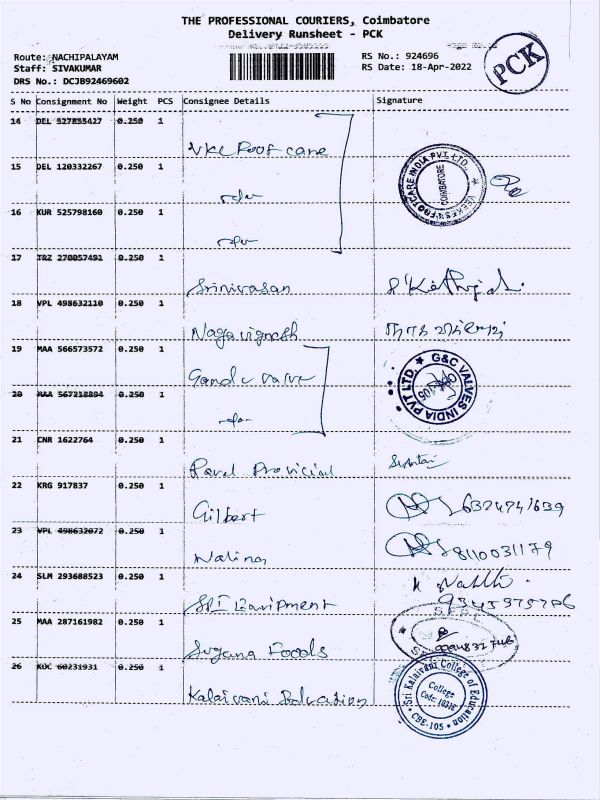 THE PROFESSIONAL COURIERS, Coimbatore
Delivery Runsheet - PCK
Route: NACHIPALAYAM
Staff: SIVAKUMAR
DRS No.: DCJB92469602
RS No.: 924696
RS Date: 18-Apr-2022
PCK
S No Consignment No Weight PCS Consignee Details Signature
14 DEL 527855427 0.250 1
VKC Footcare
15 DEL 120332267 0.250 1
VEEKESY FOOTCARE INDIA PVT LTD. COIMBATORE
16 KUR 525798160 0.250 1
17 TRZ 270057491 0.250 1
Srinivasan
18 VPL 498632110 0.250 1
Nagavignesh
19 MAA 566573572 0.250 1
G and C valve
G&C VALVES INDIA PVT LTD.
20 MAA 567218894 0.250 1
21 CNR 1622764 0.250 1
Pavel Provicial
22 KRG 917837 0.250 1
Gilbert
23 VPL 498632072 0.250 1
Nalina
8110031179
24 SLM 293688523 0.250 1
SRI Equipment
25 MAA 287161982 0.250 1
Suguna Foods
26 KOC 60231931 0.250 1
Kalaivani Education
Sri Kalaivani College of Education
College
CBE-105